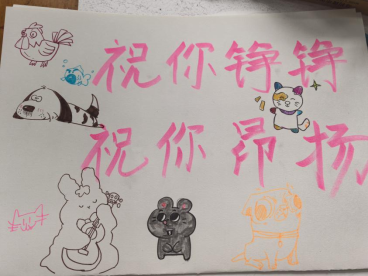 祝你铮铮
祝你昂扬